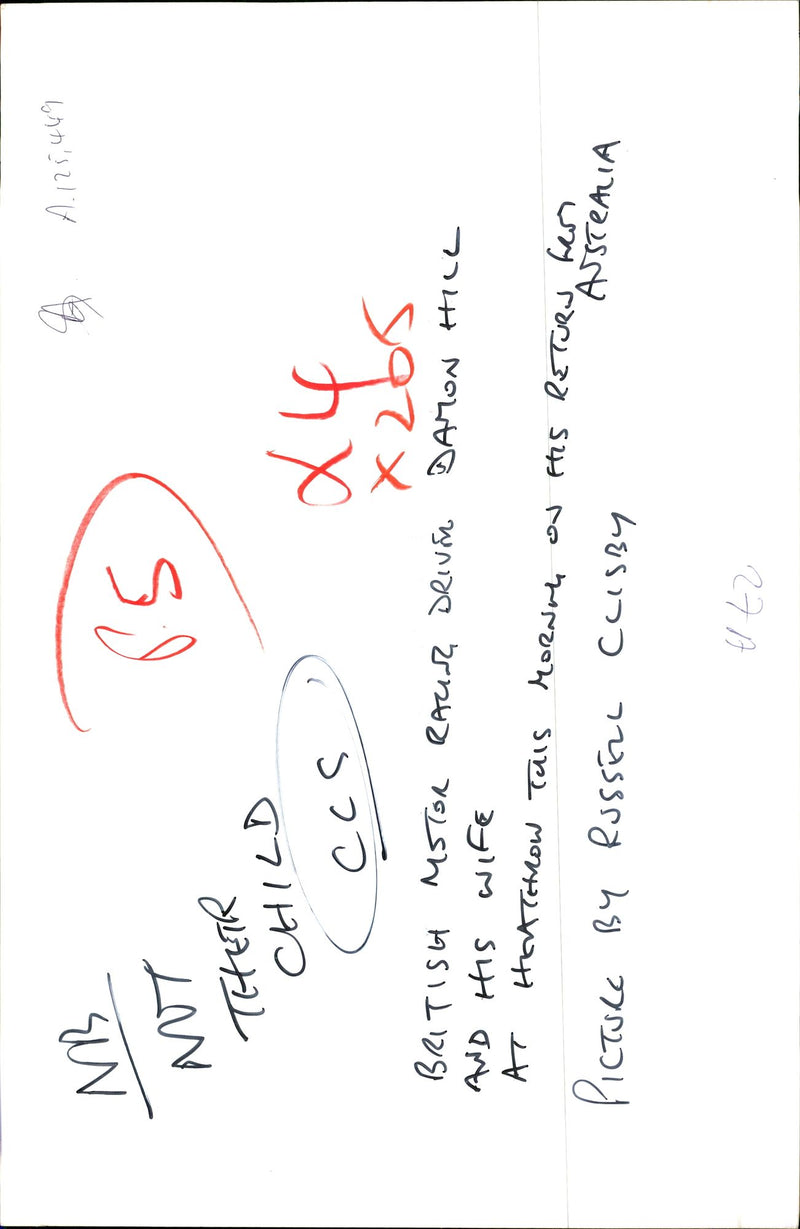 A.125,449
P.5
X4
X205
NB
NOT
THEIR
CHILD
CCS
BRITISH MOTOR RACING DRIVER DAMON HILL
AND HIS WIFE
AT HEATHROW THIS MORNING ON HIS RETURN FROM
AUSTRALIA
PICTURE BY RUSSELL CLISBY